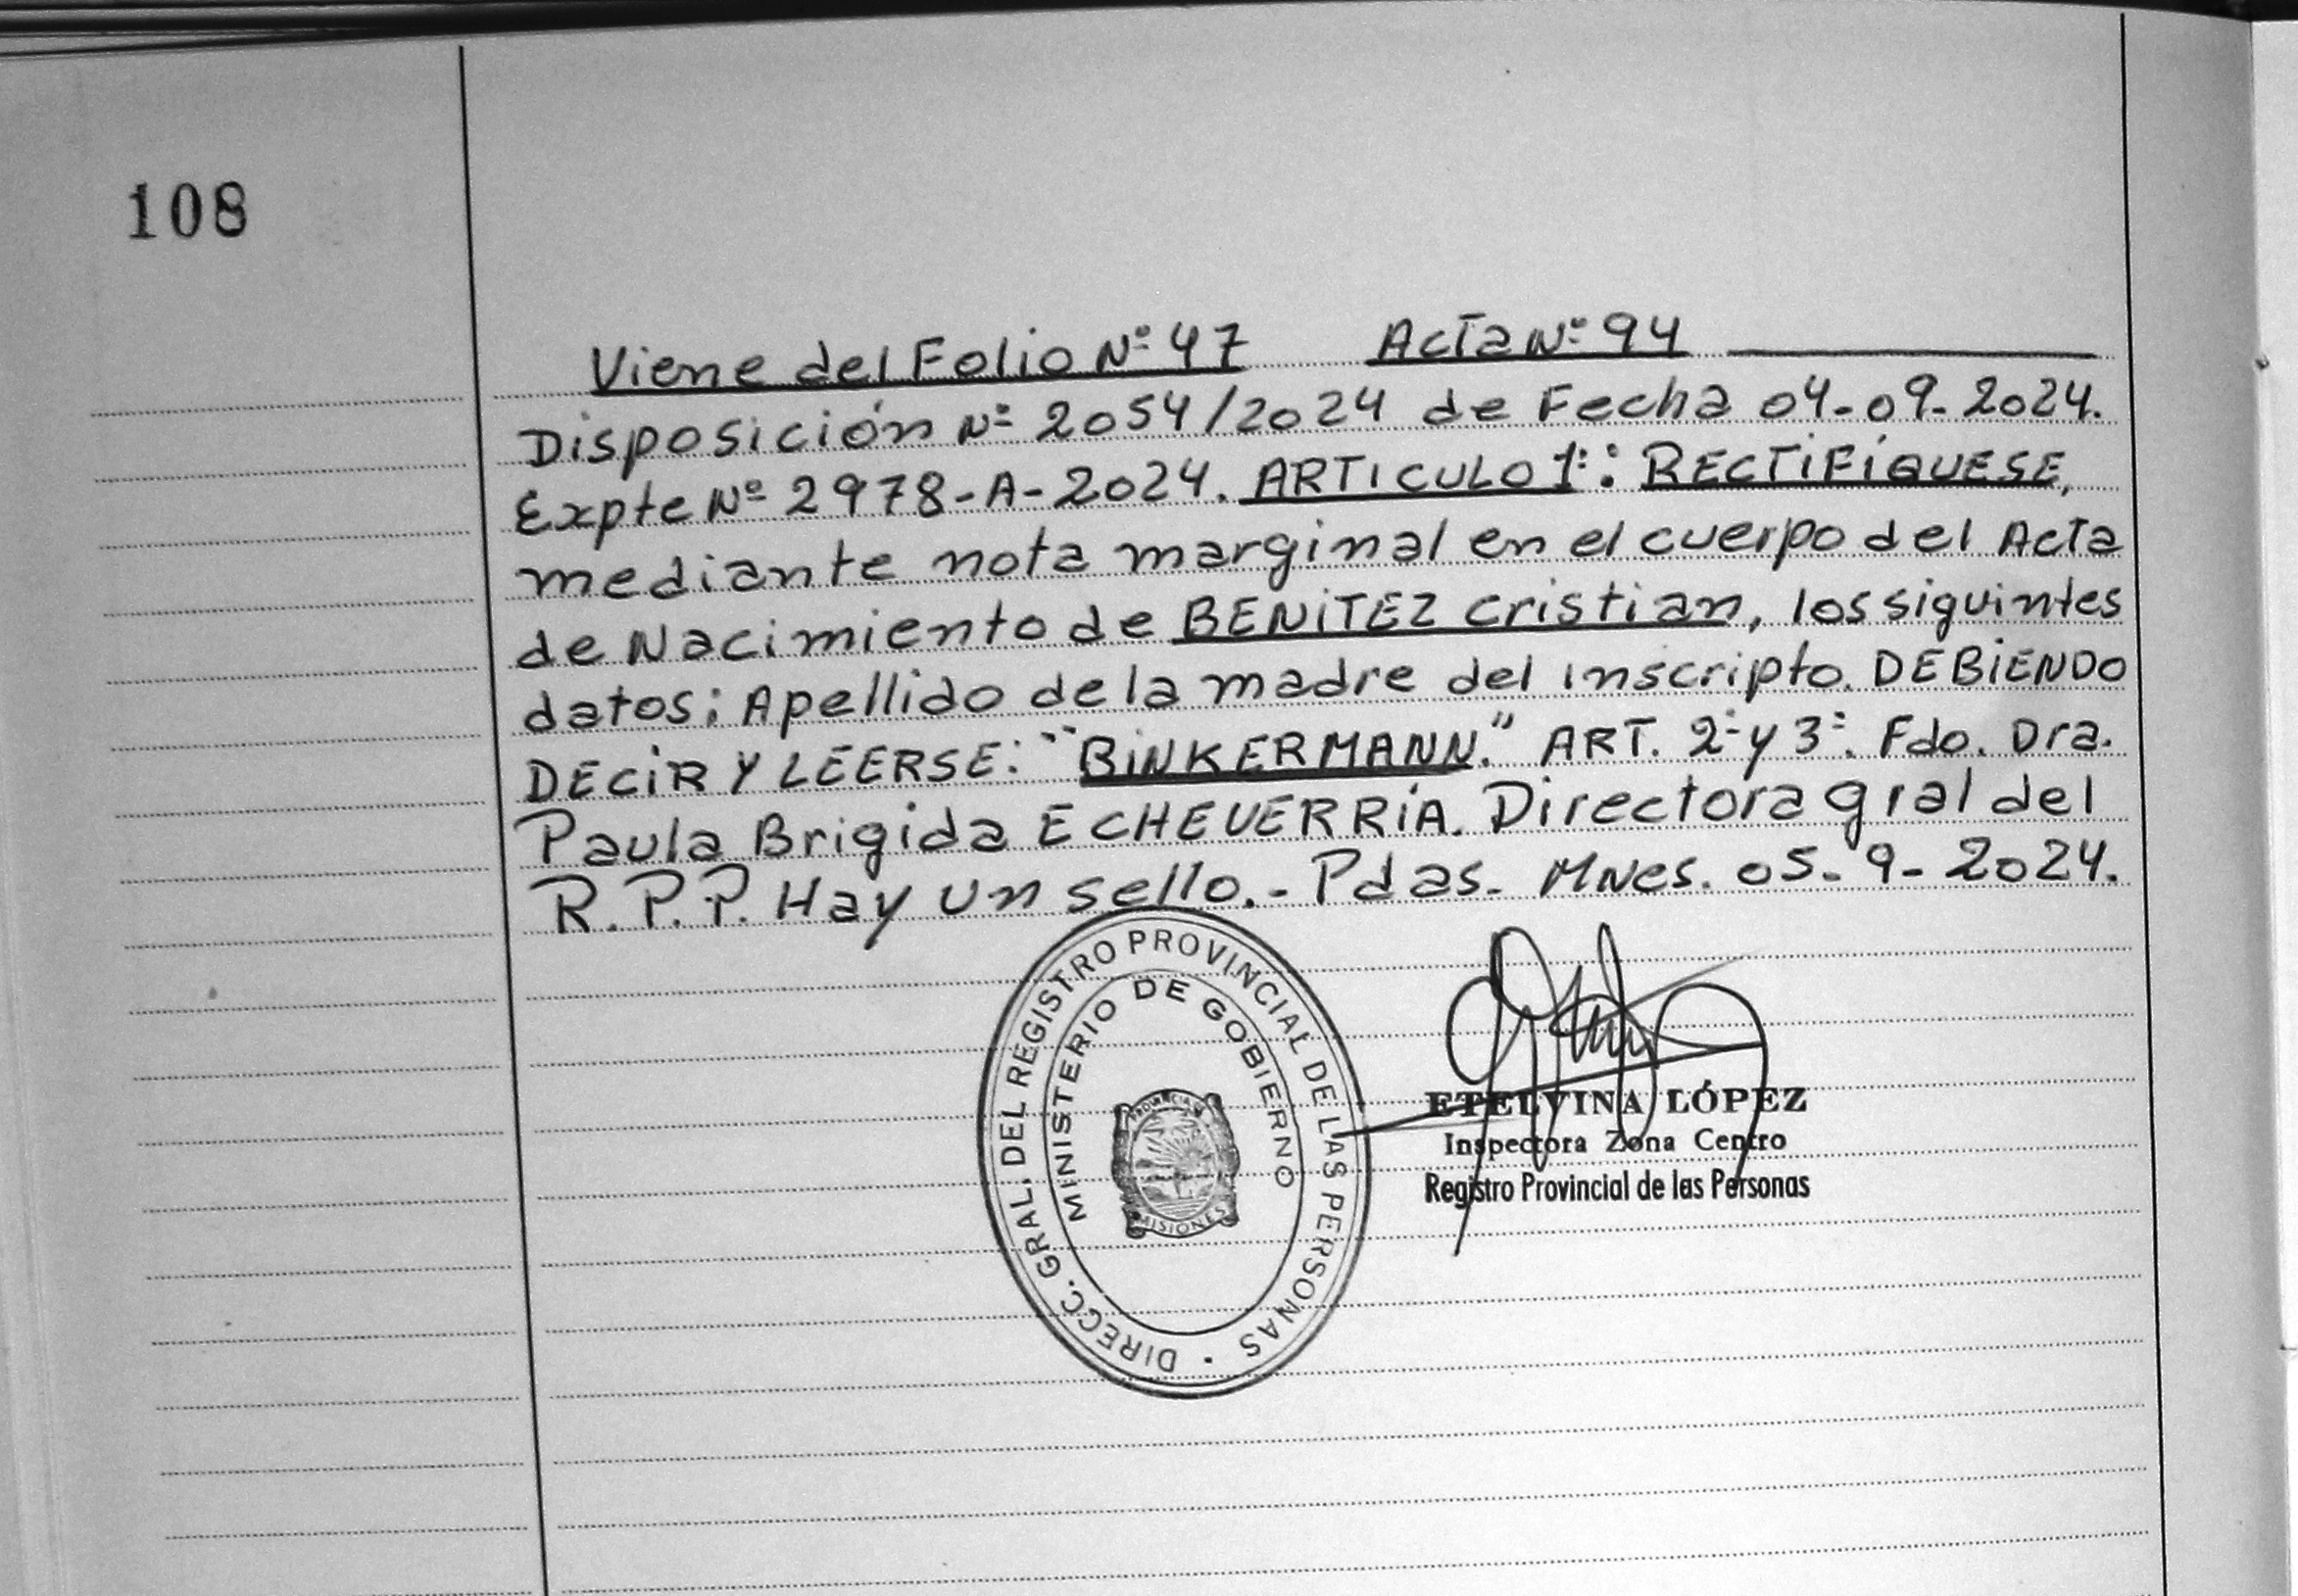 108
Viene del Folio Nº 47 Acta Nº 94
Disposición Nº 2054/2024 de Fecha 04-09-2024.
Expte Nº 2978-A-2024. ARTICULO 1º: RECTIFÍQUESE,
mediante nota marginal en el cuerpo del Acta
de Nacimiento de BENITEZ Cristian, los siguintes
datos: Apellido de la madre del inscripto. DEBIENDO
DECIR Y LEERSE: "BINKERMANN." ART. 2º y 3º. Fdo. Dra.
Paula Brigida ECHEVERRÍA. Directora gral del
R.P.P. Hay un sello.- Pdas. Mnes. 05-9-2024.
DIRECC. GRAL. DEL REGISTRO PROVINCIAL DE LAS PERSONAS
MINISTERIO DE GOBIERNO
PROVINCIA
MISIONES
ETELVINA LÓPEZ
Inspectora Zona Centro
Registro Provincial de las Personas